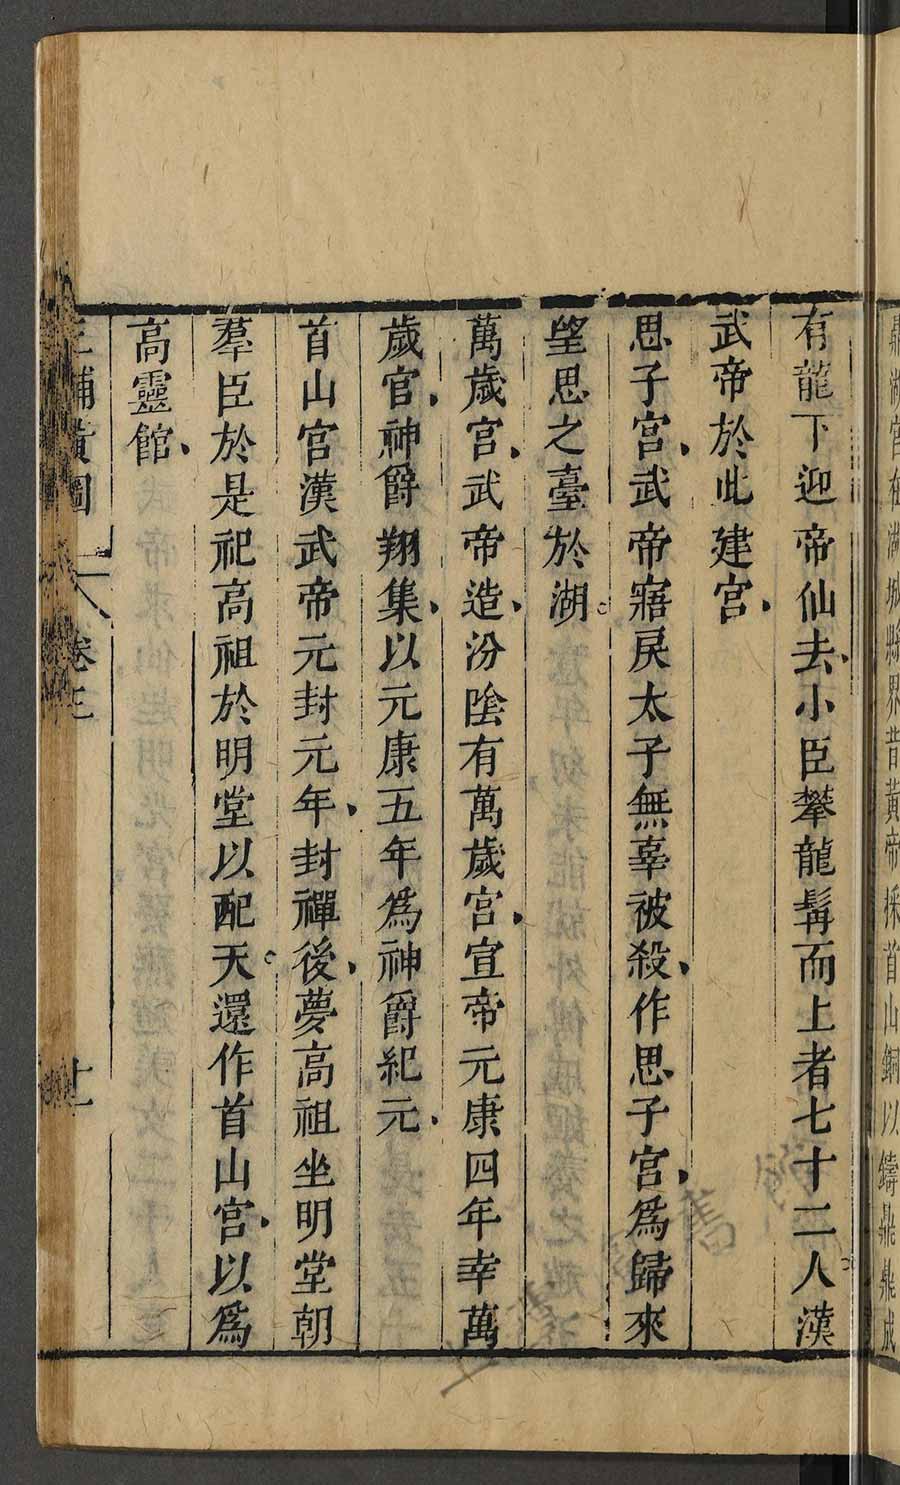 鼎湖宮在湖城縣界昔黃帝採首山銅以鑄鼎鼎成
有龍下迎帝仙去小臣攀龍髯而上者七十二人漢
武帝於此建宮
思子宮武帝寤戾太子無辜被殺作思子宮爲歸來
望思之臺於湖
萬歲宮武帝造汾陰有萬歲宮宣帝元康四年幸萬
歲宮神爵翔集以元康五年爲神爵紀元
首山宮漢武帝元封元年封禪後夢高祖坐明堂朝
羣臣於是祀高祖於明堂以配天還作首山宮以爲
高靈館
三輔黃圖 卷三 十一